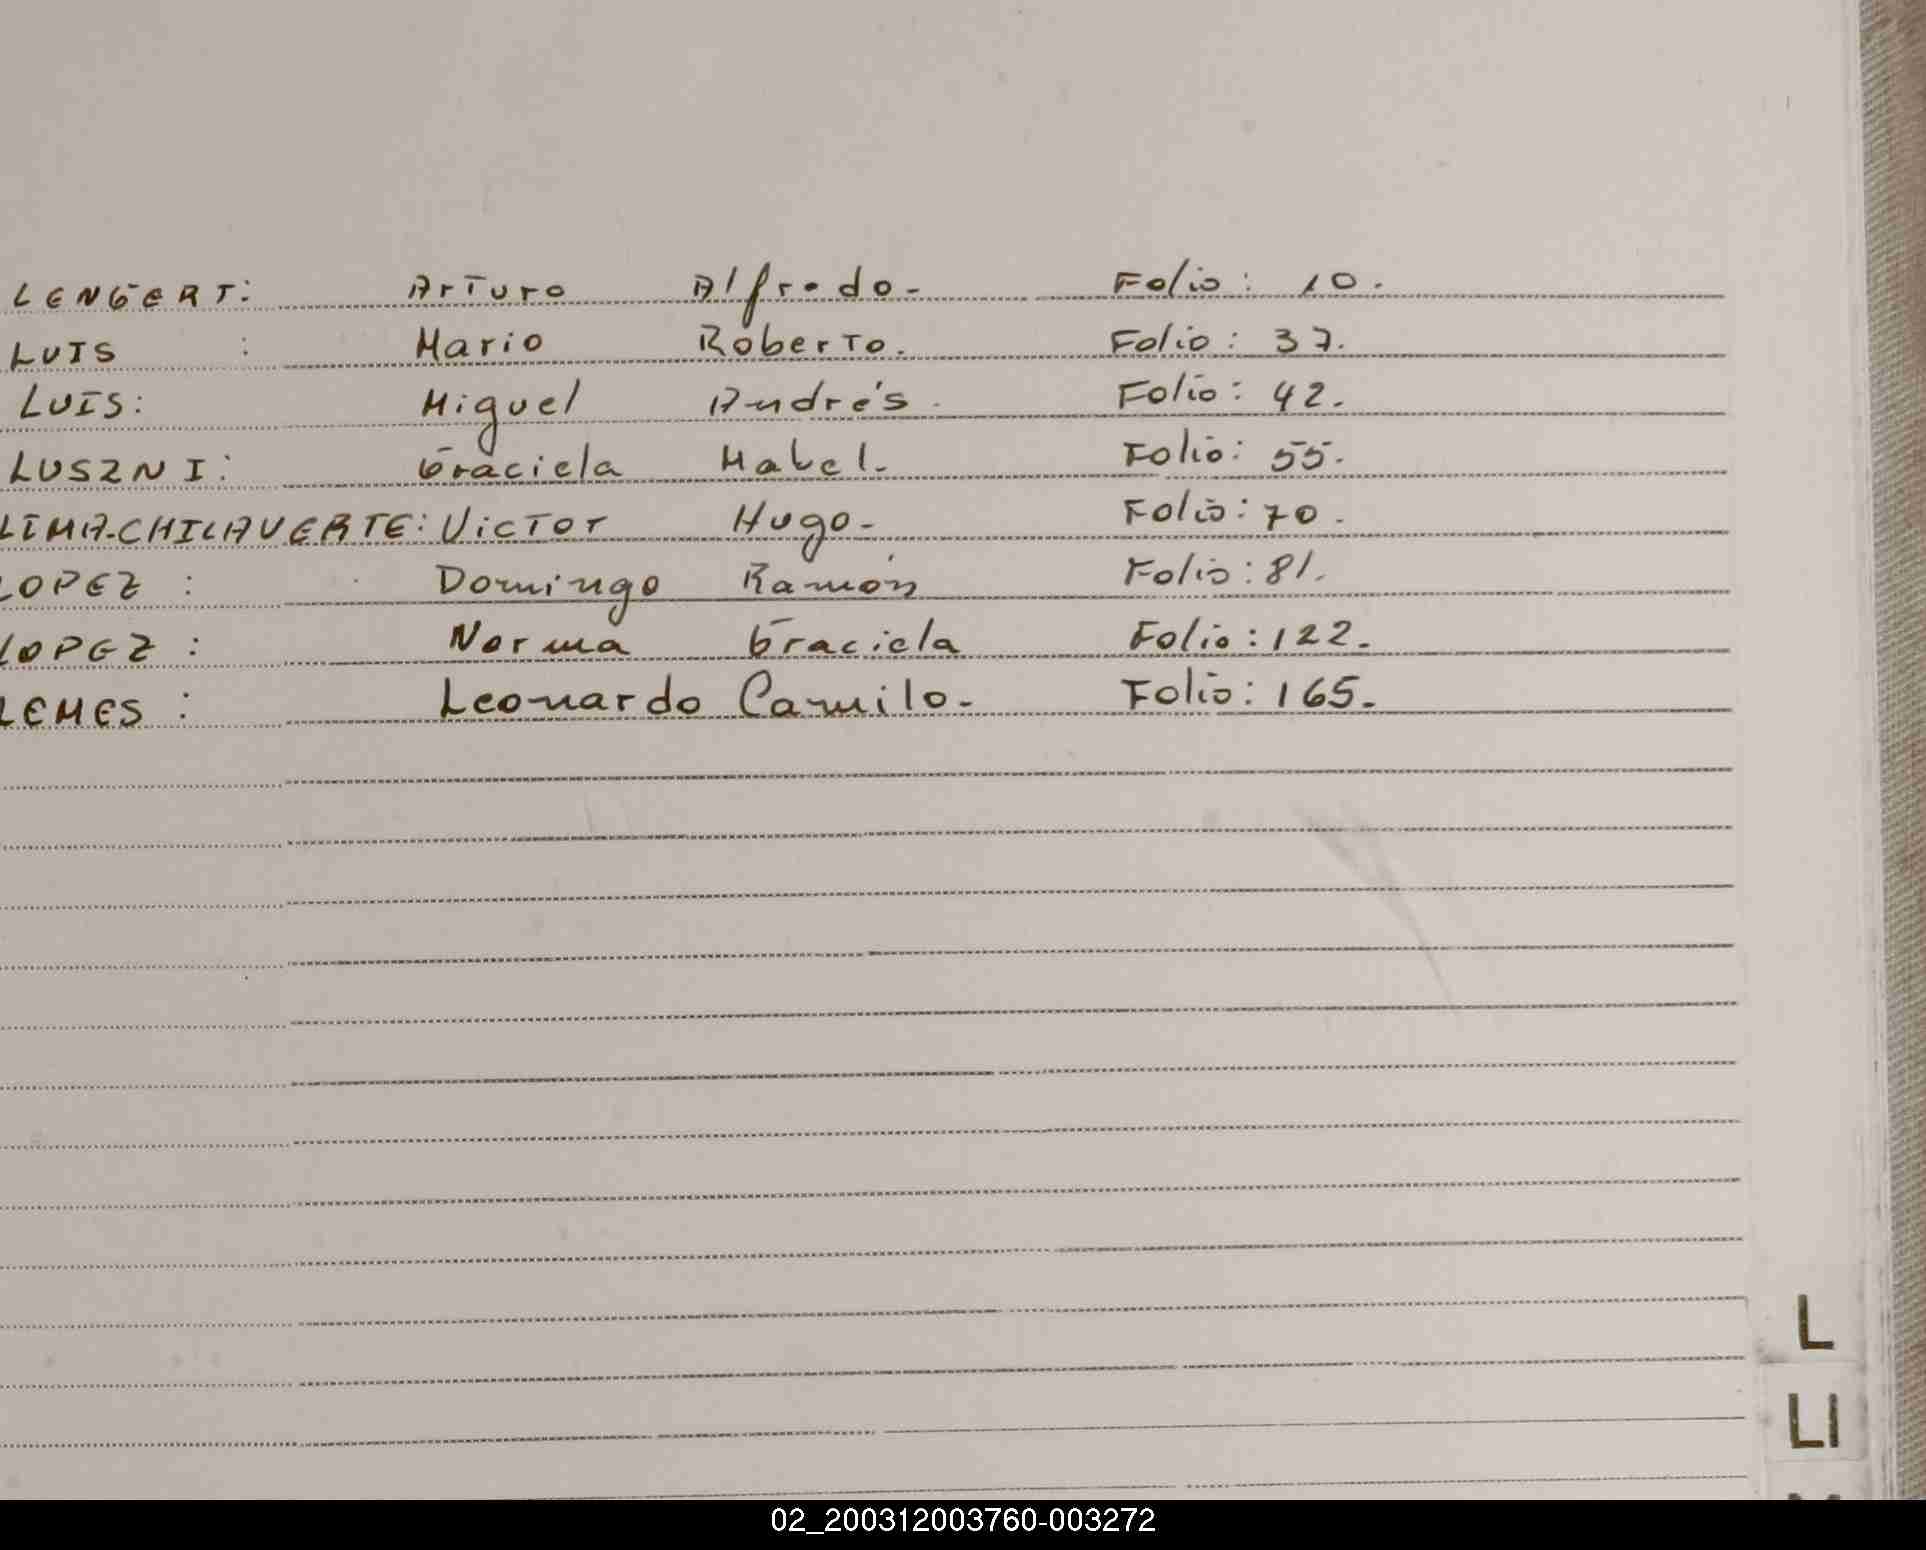 LENGERT: Arturo Alfredo- Folio: 10.
LUIS : Mario Roberto. Folio: 37.
LUIS: Miguel Andrés. Folio: 42.
LUSZNI: Graciela Mabel. Folio: 55.
LIMA-CHILAVERTE: Victor Hugo- Folio: 70.
LOPEZ : Domingo Ramón Folio: 81.
LOPEZ : Norma Graciela Folio: 122.
LEMES : Leonardo Camilo- Folio: 165.
L
Ll
02_200312003760-003272